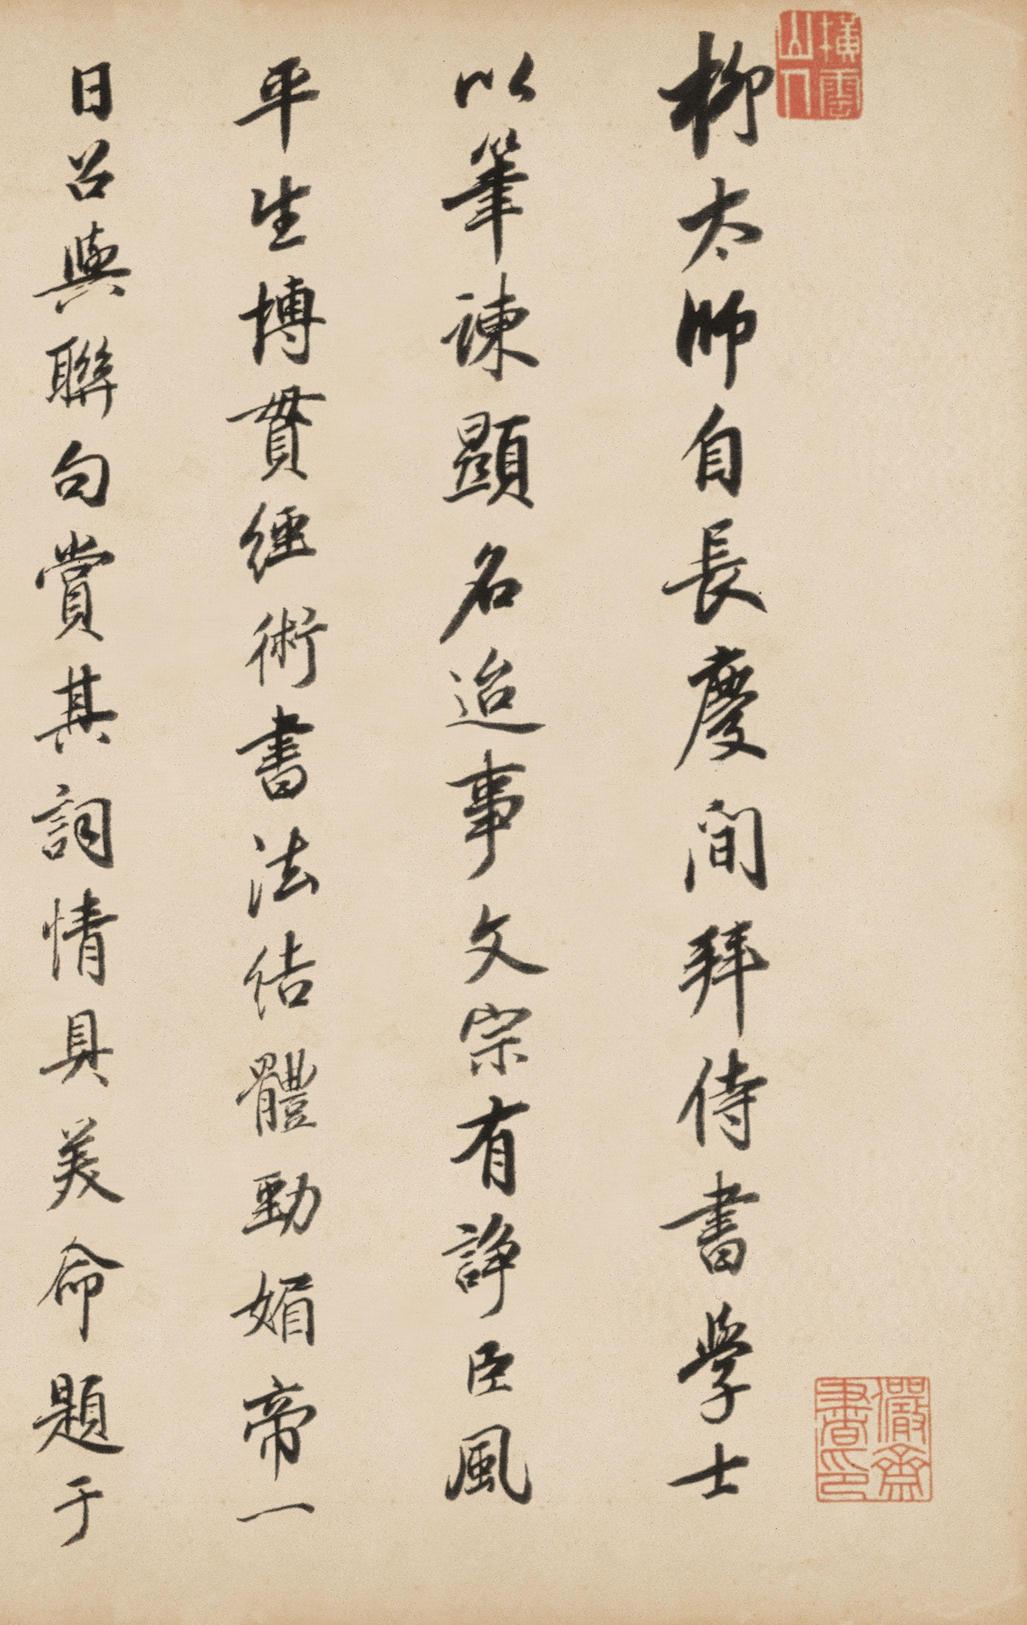 柳太師自長慶間拜侍書學士
以筆諫顯名迨事文宗有諍臣風
平生博貫經術書法結體勁媚帝一
日召與聯句賞其詞情具美命題于
橫雲山人
儼齋書印